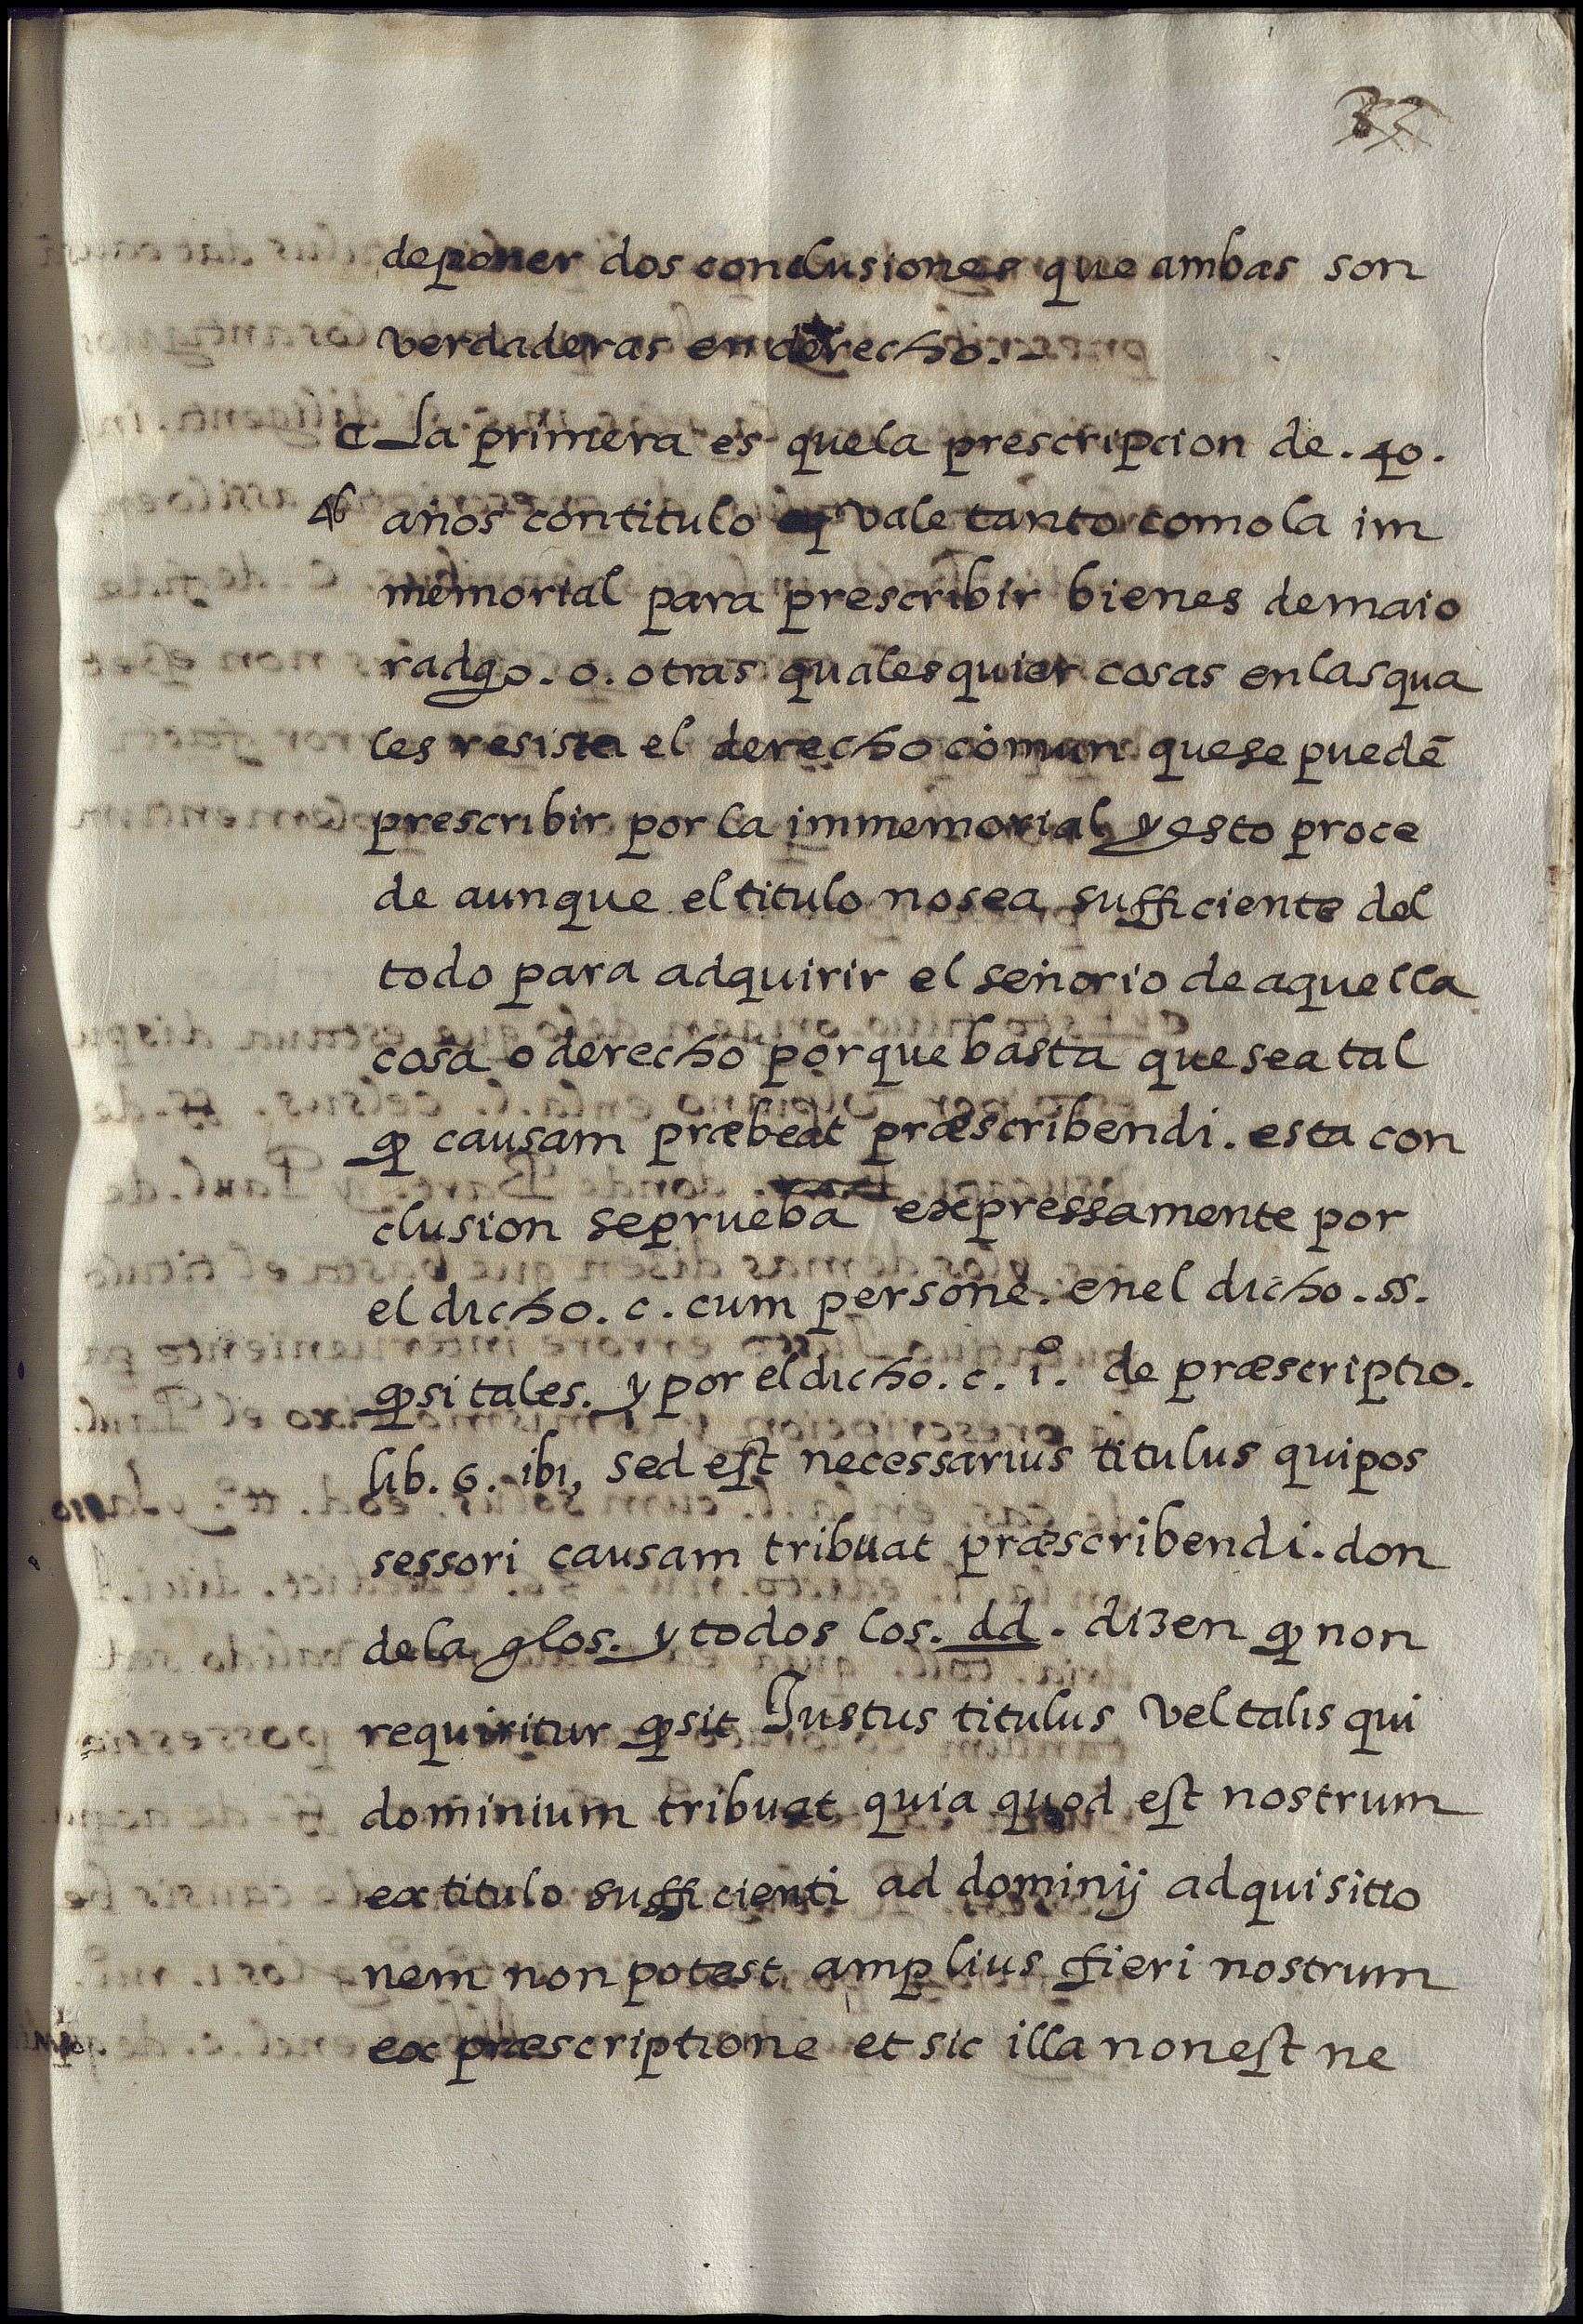 deponer dos conclusiones que ambas son
verdaderas en derecho.
La primera es quela prescripcion de. 40.
años contitulo vale tanto como la im
memorial para prescribir bienes demaio
radgo. o. otras qualesquier cosas enlasqua
les resista el derecho comun quese puedē
prescribir por la immemorial y esto proce
de aunque eltitulo nosea sufficiente del
todo para adquirir el señorio de aquella
cosa o derecho porque basta que sea tal
ꝙ causam præbeat præscribendi. esta con
clusion seprueba expressamente por
el dicho. c. cum persone. enel dicho. ss.
ꝙ si tales. y por eldicho. c. iº. de præscriptio.
lib. 6. ibi, sed est necessarius titulus quipos
sessori causam tribuat præscribendi. don
dela glos. y todos los. dd. dizen ꝙ non
requiritur ꝙ sit Justus titulus vel talis qui
dominium tribuat quia quod est nostrum
ex titulo sufficienti ad dominij adquisitio
nem non potest amplius fieri nostrum
ex præscriptione et sic illa non est ne